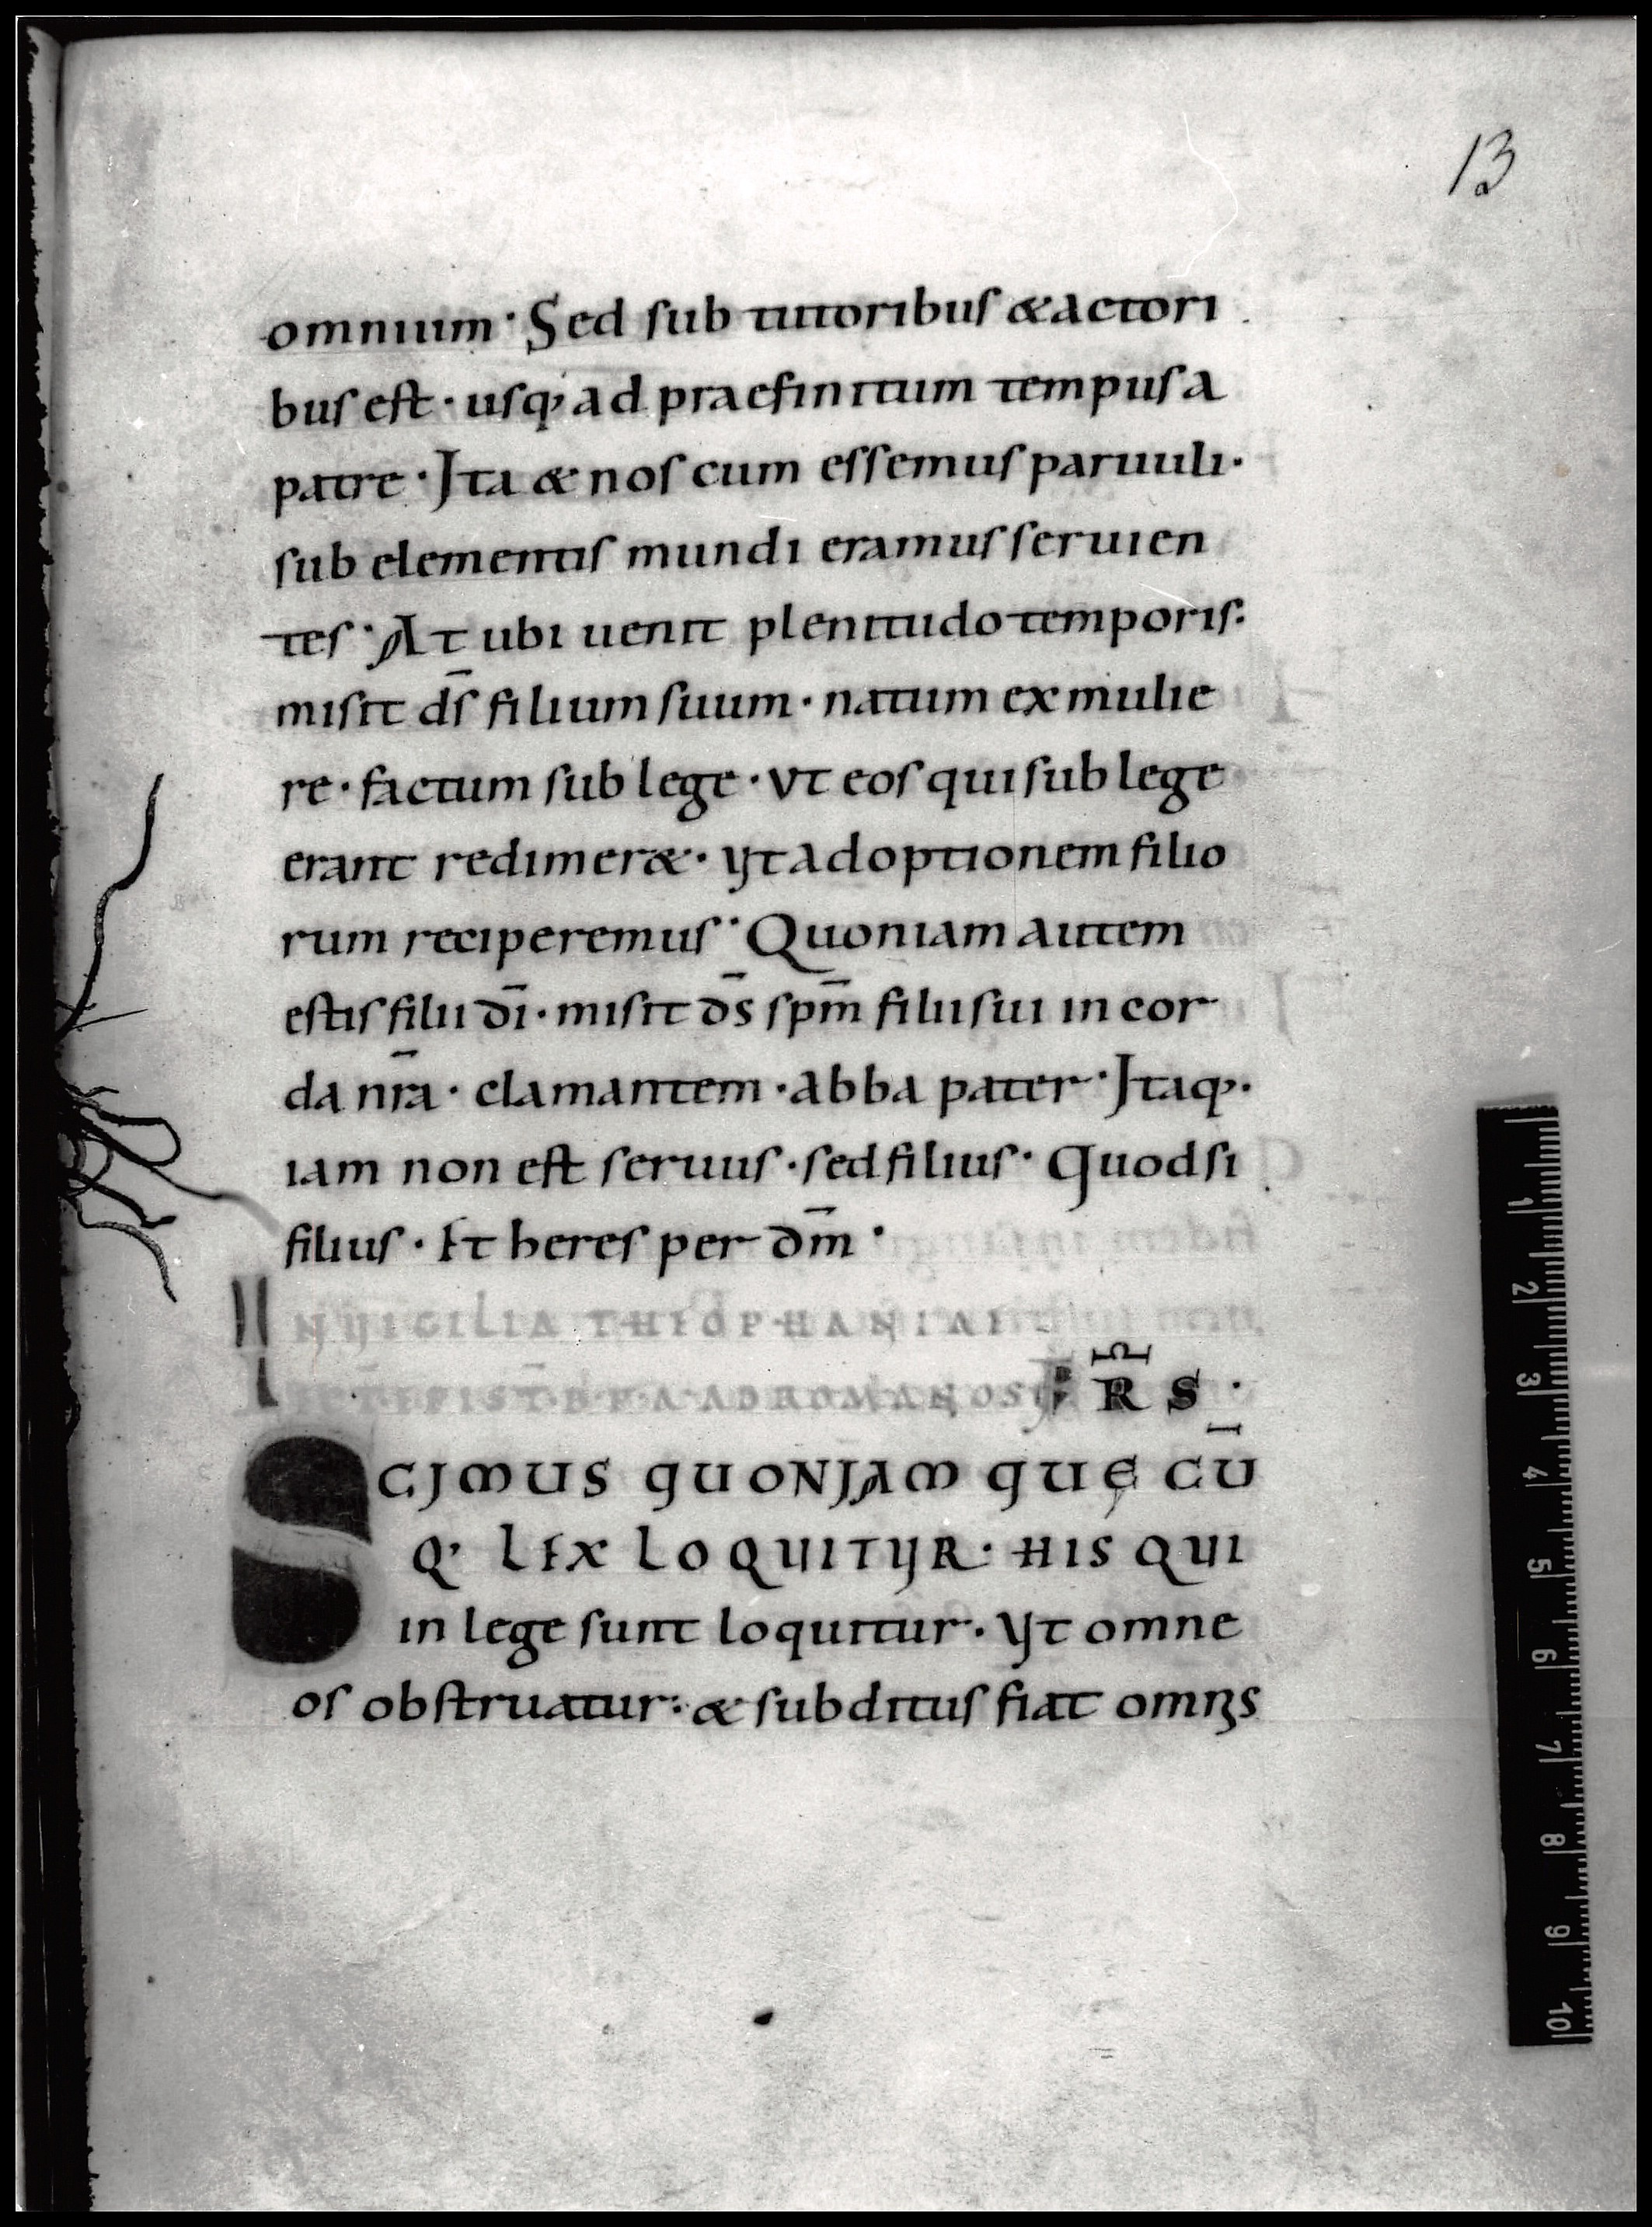 13
omnium · Sed sub tutoribus & actori
bus est · usq; ad praefinitum tempus a
patre · Ita & nos cum essemus paruuli ·
sub elementis mundi eramus seruien
tes · At ubi uenit plenitudo temporis ·
misit d̄s filium suum · natum ex mulie
re · factum sub lege · Vt eos qui sub lege
erant redimer& · Vt adoptionem filio
rum reciperemus · Quoniam autem
estis filii d̄i · misit d̄s sp̄m filii sui in cor
da nr̄a · clamantem · abba pater · Itaq; ·
iam non est seruus · sed filius · Quod si
filius · Et heres per d̄m ·
IN VIGILIA THEOPHANIAE
EPIST B P A AD ROMANOS
R̄ S ·
SCIMUS QUONIAM QUĘ CŪ
Q· LEX LOQUITUR · HIS QUI
in lege sunt loquitur · Vt omne
os obstruatur · & subditus fiat omnis
1
2
3
4
5
6
7
8
9
10